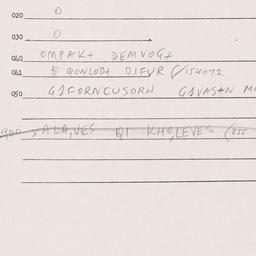 020 O
030 O
040 OMPAKT DEMVOGT
041 5 QONLODT DIFUR (/154072
050 G1FORNCUSORN G1VASTN
900 XALA,VES QI KHO,LEVES (855